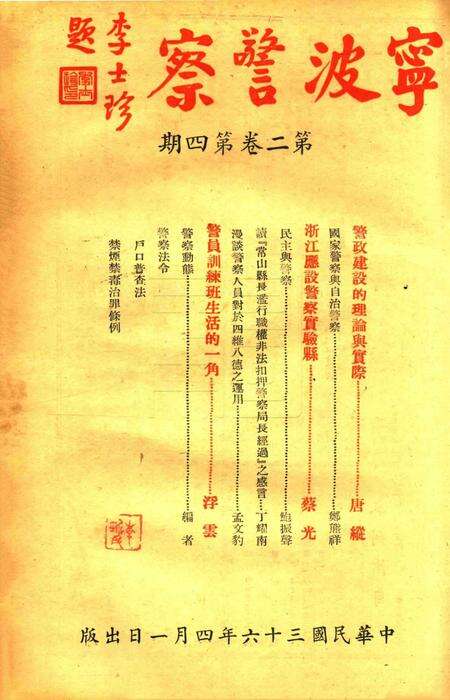 寧波警察
李士珍
題
第二卷第四期
警政建設的理論與實際……唐縱
國家警察與自治警察……鄭熊祥
浙江應設警察實驗縣……蔡光
民主與警察……鮑振聲
讀『常山縣長濫行職權非法扣押警察局長經過』之感言……丁耀南
漫談警察人員對於四維八德之運用……孟文豹
警員訓練班生活的一角……浮雲
警察動態……編者
警察法令
戶口普查法
禁煙禁毒治罪條例
中華民國三十六年四月一日出版